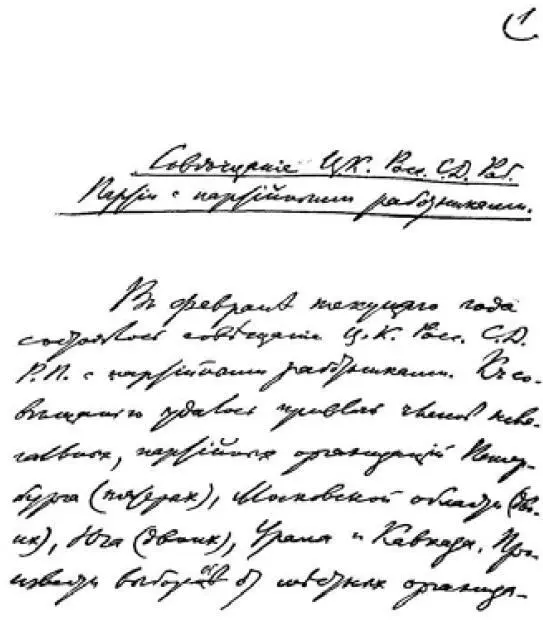 1
Совѣщаніе Ц.К. Росс. С.Д. Раб.
Партіи с партійными работниками.
Въ февралѣ текущаго года
состоялось совѣщаніе Ц.К. Росс. С.Д.
Р.П. с партійными работниками. Къ со-
вѣщанію удалось привлечь членов неле-
гальных, партійных организацій Петер-
бурга (пятерых), Московской области (дво-
их), Юга (двоих), Урала и Кавказа. Про-
извести выборы от мѣстных организа-